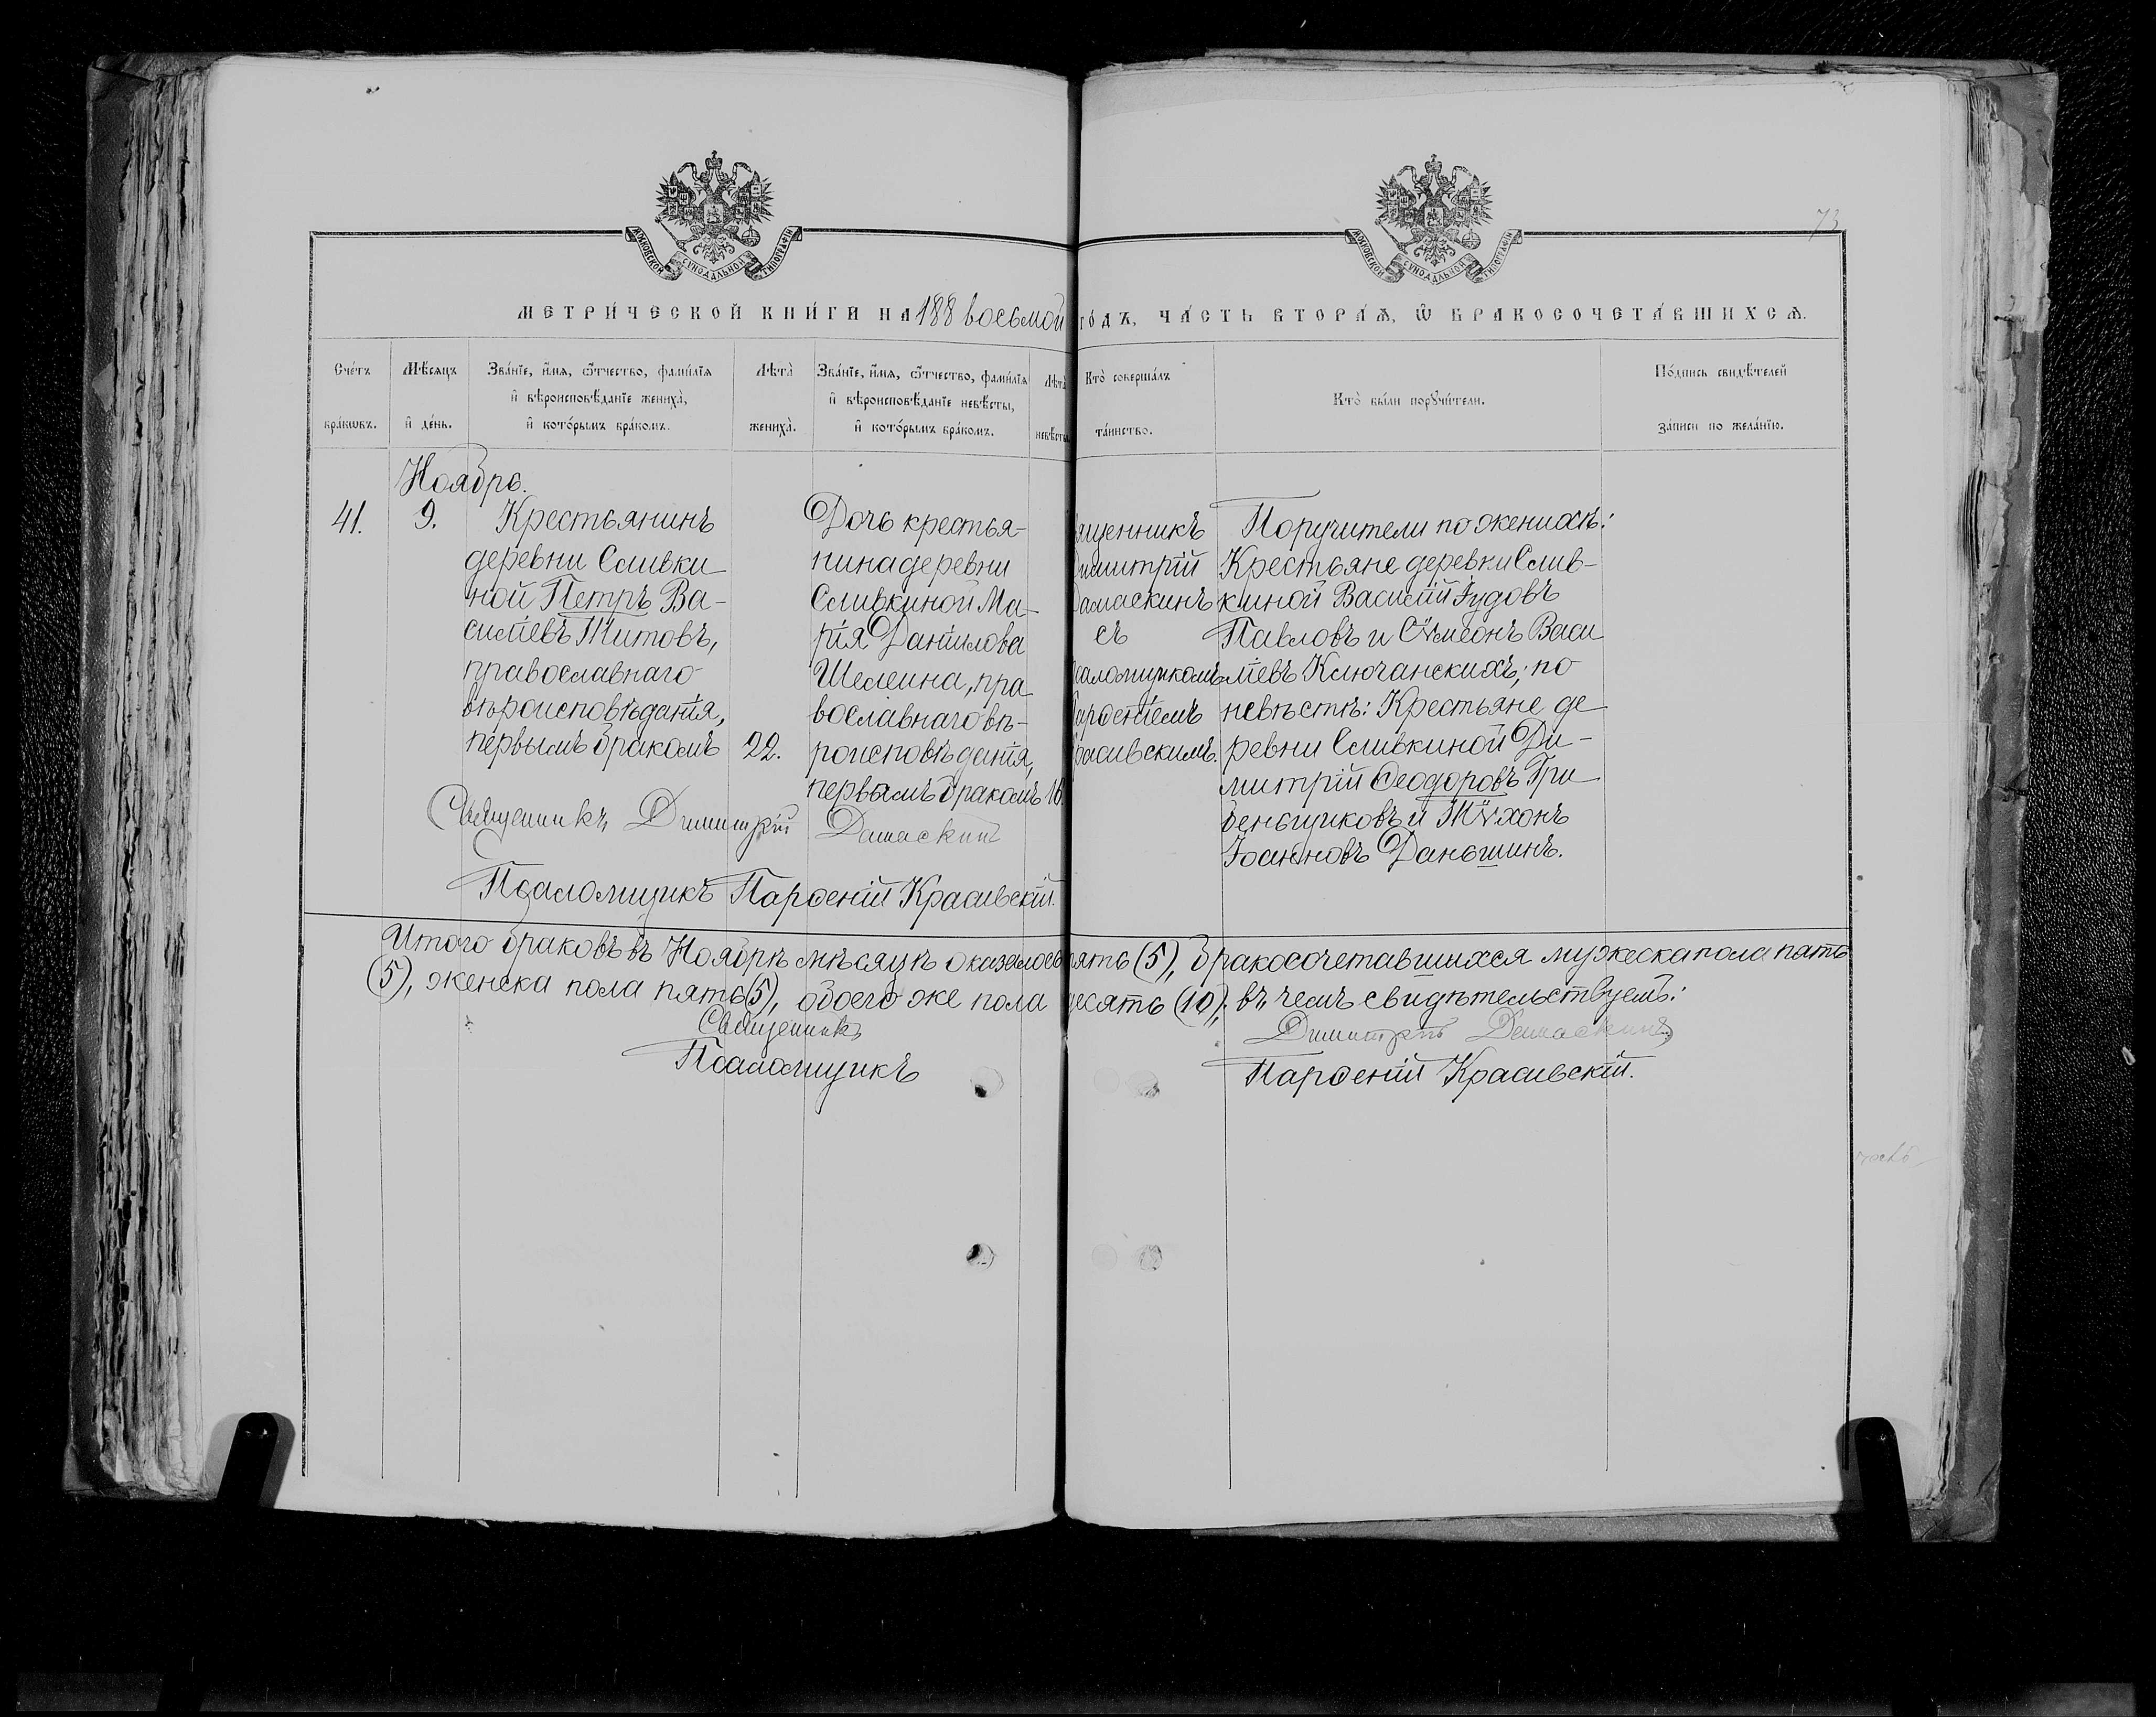 73
МОСКОВСКОЙ СѴНОДАЛЬНОЙ ТИПОГРАФІИ
МОСКОВСКОЙ СѴНОДАЛЬНОЙ ТИПОГРАФІИ
МЕТРИ́ЧЕСКОЙ КНИ́ГИ НА 188 восьмой ГО́ДЪ, ЧА́СТЬ ВТОРА́Ѧ, Ѡ҆ БРАКОСОЧЕТА́ВШИХСѦ.
Сче́тъ бра́кѡвъ.
Мѣ́сяцъ и҆ де́нь.
Зва́нїе, и҆́мѧ, ѻ҆́тчество, фами́лїѧ
и҆ вѣроисповѣ́данїе жениха̀,
и҆ кото́рымъ бра́комъ.
Лѣта̀ жениха̀.
Зва́нїе, и҆́мѧ, ѻ҆́тчество, фами́лїѧ
и҆ вѣроисповѣ́данїе невѣ́сты,
и҆ кото́рымъ бра́комъ.
Лѣта̀ невѣ́сты
Кто̀ соверша́лъ та́инство.
Кто̀ бы́ли порꙋчи́тели.
По́дпись свидѣ́телей за́писи по жела́нїю.
Ноября.
41.
9.
Крестьянинъ
деревни Сливки
ной Петръ Ва-
силіевъ Титовъ,
православнаго
вѣроисповѣданія,
первымъ бракомъ
22.
Дочь крестья-
нина деревни
Сливкиной Ма-
рія Даніилова
Шелеина, пра
вославнаго вѣ-
роисповѣданія,
первымъ бракомъ
16.
ященникъ
Димитрій
Дамаскинъ
съ
саломщикомъ
Парѳеніемъ
Красивскимъ.
Поручители по женихѣ:
Крестьяне деревни Слив-
киной Василій Іудовъ
Павловъ и Сѵмеонъ Васи
ліевъ Ключанскихъ; по
невѣстѣ: Крестьяне де
ревни Сливкиной Ди-
митрій Ѳеодоровъ Гри
беньщиковъ и Тѵхонъ
Іоанновъ Даньшинъ.
Священникъ Димитрій Дамаскинъ
Псаломщикъ Парѳеній Красивскій.
Итого браковъ въ Ноябрѣ мѣсяцѣ оказалось пять (5), бракосочетавшихся мужеска пола пять
(5), женска пола пять (5), обоего же пола десять (10); въ чемъ свидѣтельствуемъ:
Священникъ Димитрій Дамаскинъ
Псаломщикъ Парѳеній Красивскій.